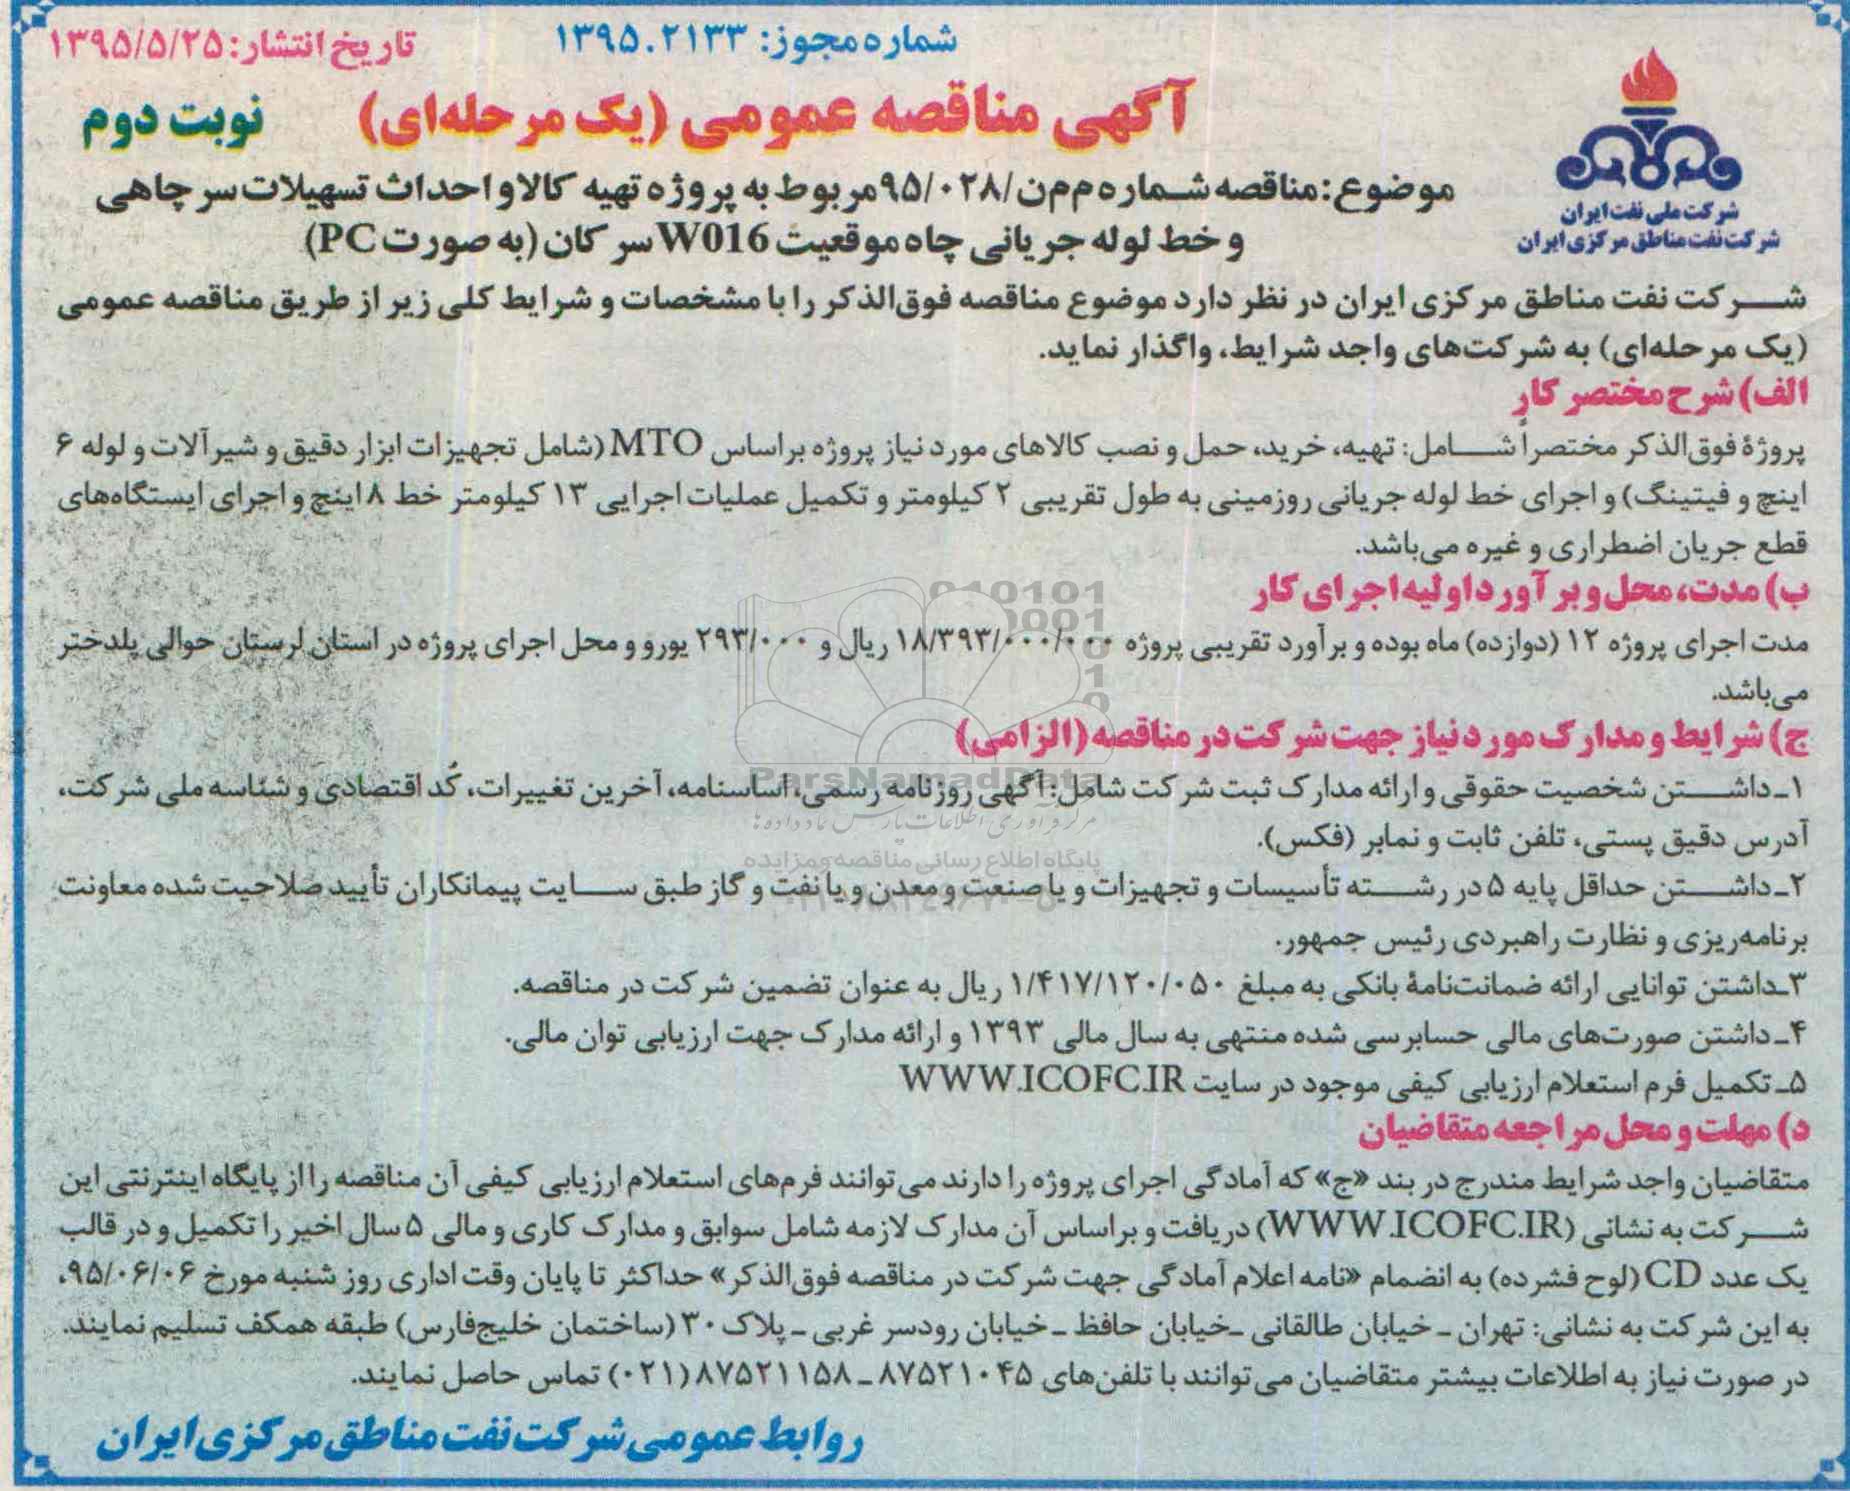 شماره مجوز: ۱۳۹۵.۲۱۳۳
تاریخ انتشار: ۱۳۹۵/۵/۲۵
آگهی مناقصه عمومی (یک مرحله‌ای)
نوبت دوم
شرکت ملی نفت ایران
شرکت نفت مناطق مرکزی ایران
موضوع: مناقصه شماره م‌م‌ن/۹۵/۰۲۸ مربوط به پروژه تهیه کالا و احداث تسهیلات سر چاهی
و خط لوله جریانی چاه موقعیت W016 سرکان (به صورت PC)
شرکت نفت مناطق مرکزی ایران در نظر دارد موضوع مناقصه فوق‌الذکر را با مشخصات و شرایط کلی زیر از طریق مناقصه عمومی
(یک مرحله‌ای) به شرکت‌های واجد شرایط، واگذار نماید.
الف) شرح مختصر کار
پروژهٔ فوق‌الذکر مختصراً شامل: تهیه، خرید، حمل و نصب کالاهای مورد نیاز پروژه براساس MTO (شامل تجهیزات ابزار دقیق و شیرآلات و لوله ۶
اینچ و فیتینگ) و اجرای خط لوله جریانی روزمینی به طول تقریبی ۲ کیلومتر و تکمیل عملیات اجرایی ۱۳ کیلومتر خط ۸ اینچ و اجرای ایستگاه‌های
قطع جریان اضطراری و غیره می‌باشد.
ب) مدت، محل و برآورد اولیه اجرای کار
مدت اجرای پروژه ۱۲ (دوازده) ماه بوده و برآورد تقریبی پروژه ۱۸/۳۹۳/۰۰۰/۰۰۰ ریال و ۲۹۳/۰۰۰ یورو و محل اجرای پروژه در استان لرستان حوالی پلدختر
می‌باشد.
ج) شرایط و مدارک مورد نیاز جهت شرکت در مناقصه (الزامی)
۱ـ داشتن شخصیت حقوقی و ارائه مدارک ثبت شرکت شامل: آگهی روزنامه رسمی، اساسنامه، آخرین تغییرات، کُد اقتصادی و شناسه ملی شرکت،
آدرس دقیق پستی، تلفن ثابت و نمابر (فکس).
۲ـ داشتن حداقل پایه ۵ در رشته تأسیسات و تجهیزات و یا صنعت و معدن و یا نفت و گاز طبق سایت پیمانکاران تأیید صلاحیت شده معاونت
برنامه‌ریزی و نظارت راهبردی رئیس جمهور.
۳ـ داشتن توانایی ارائه ضمانت‌نامهٔ بانکی به مبلغ ۱/۴۱۷/۱۲۰/۰۵۰ ریال به عنوان تضمین شرکت در مناقصه.
۴ـ داشتن صورت‌های مالی حسابرسی شده منتهی به سال مالی ۱۳۹۳ و ارائه مدارک جهت ارزیابی توان مالی.
۵ـ تکمیل فرم استعلام ارزیابی کیفی موجود در سایت WWW.ICOFC.IR
د) مهلت و محل مراجعه متقاضیان
متقاضیان واجد شرایط مندرج در بند «ج» که آمادگی اجرای پروژه را دارند می‌توانند فرم‌های استعلام ارزیابی کیفی آن مناقصه را از پایگاه اینترنتی این
شرکت به نشانی (WWW.ICOFC.IR) دریافت و براساس آن مدارک لازمه شامل سوابق و مدارک کاری و مالی ۵ سال اخیر را تکمیل و در قالب
یک عدد CD (لوح فشرده) به انضمام «نامه اعلام آمادگی جهت شرکت در مناقصه فوق‌الذکر» حداکثر تا پایان وقت اداری روز شنبه مورخ ۹۵/۰۶/۰۶،
به این شرکت به نشانی: تهران ـ خیابان طالقانی ـ خیابان حافظ ـ خیابان رودسر غربی ـ پلاک ۳۰ (ساختمان خلیج‌فارس) طبقه همکف تسلیم نمایند.
در صورت نیاز به اطلاعات بیشتر متقاضیان می‌توانند با تلفن‌های ۸۷۵۲۱۰۴۵ ـ ۸۷۵۲۱۱۵۸ (۰۲۱) تماس حاصل نمایند.
روابط عمومی شرکت نفت مناطق مرکزی ایران
ParsNamadData
پایگاه اطلاع رسانی مناقصه و مزایده